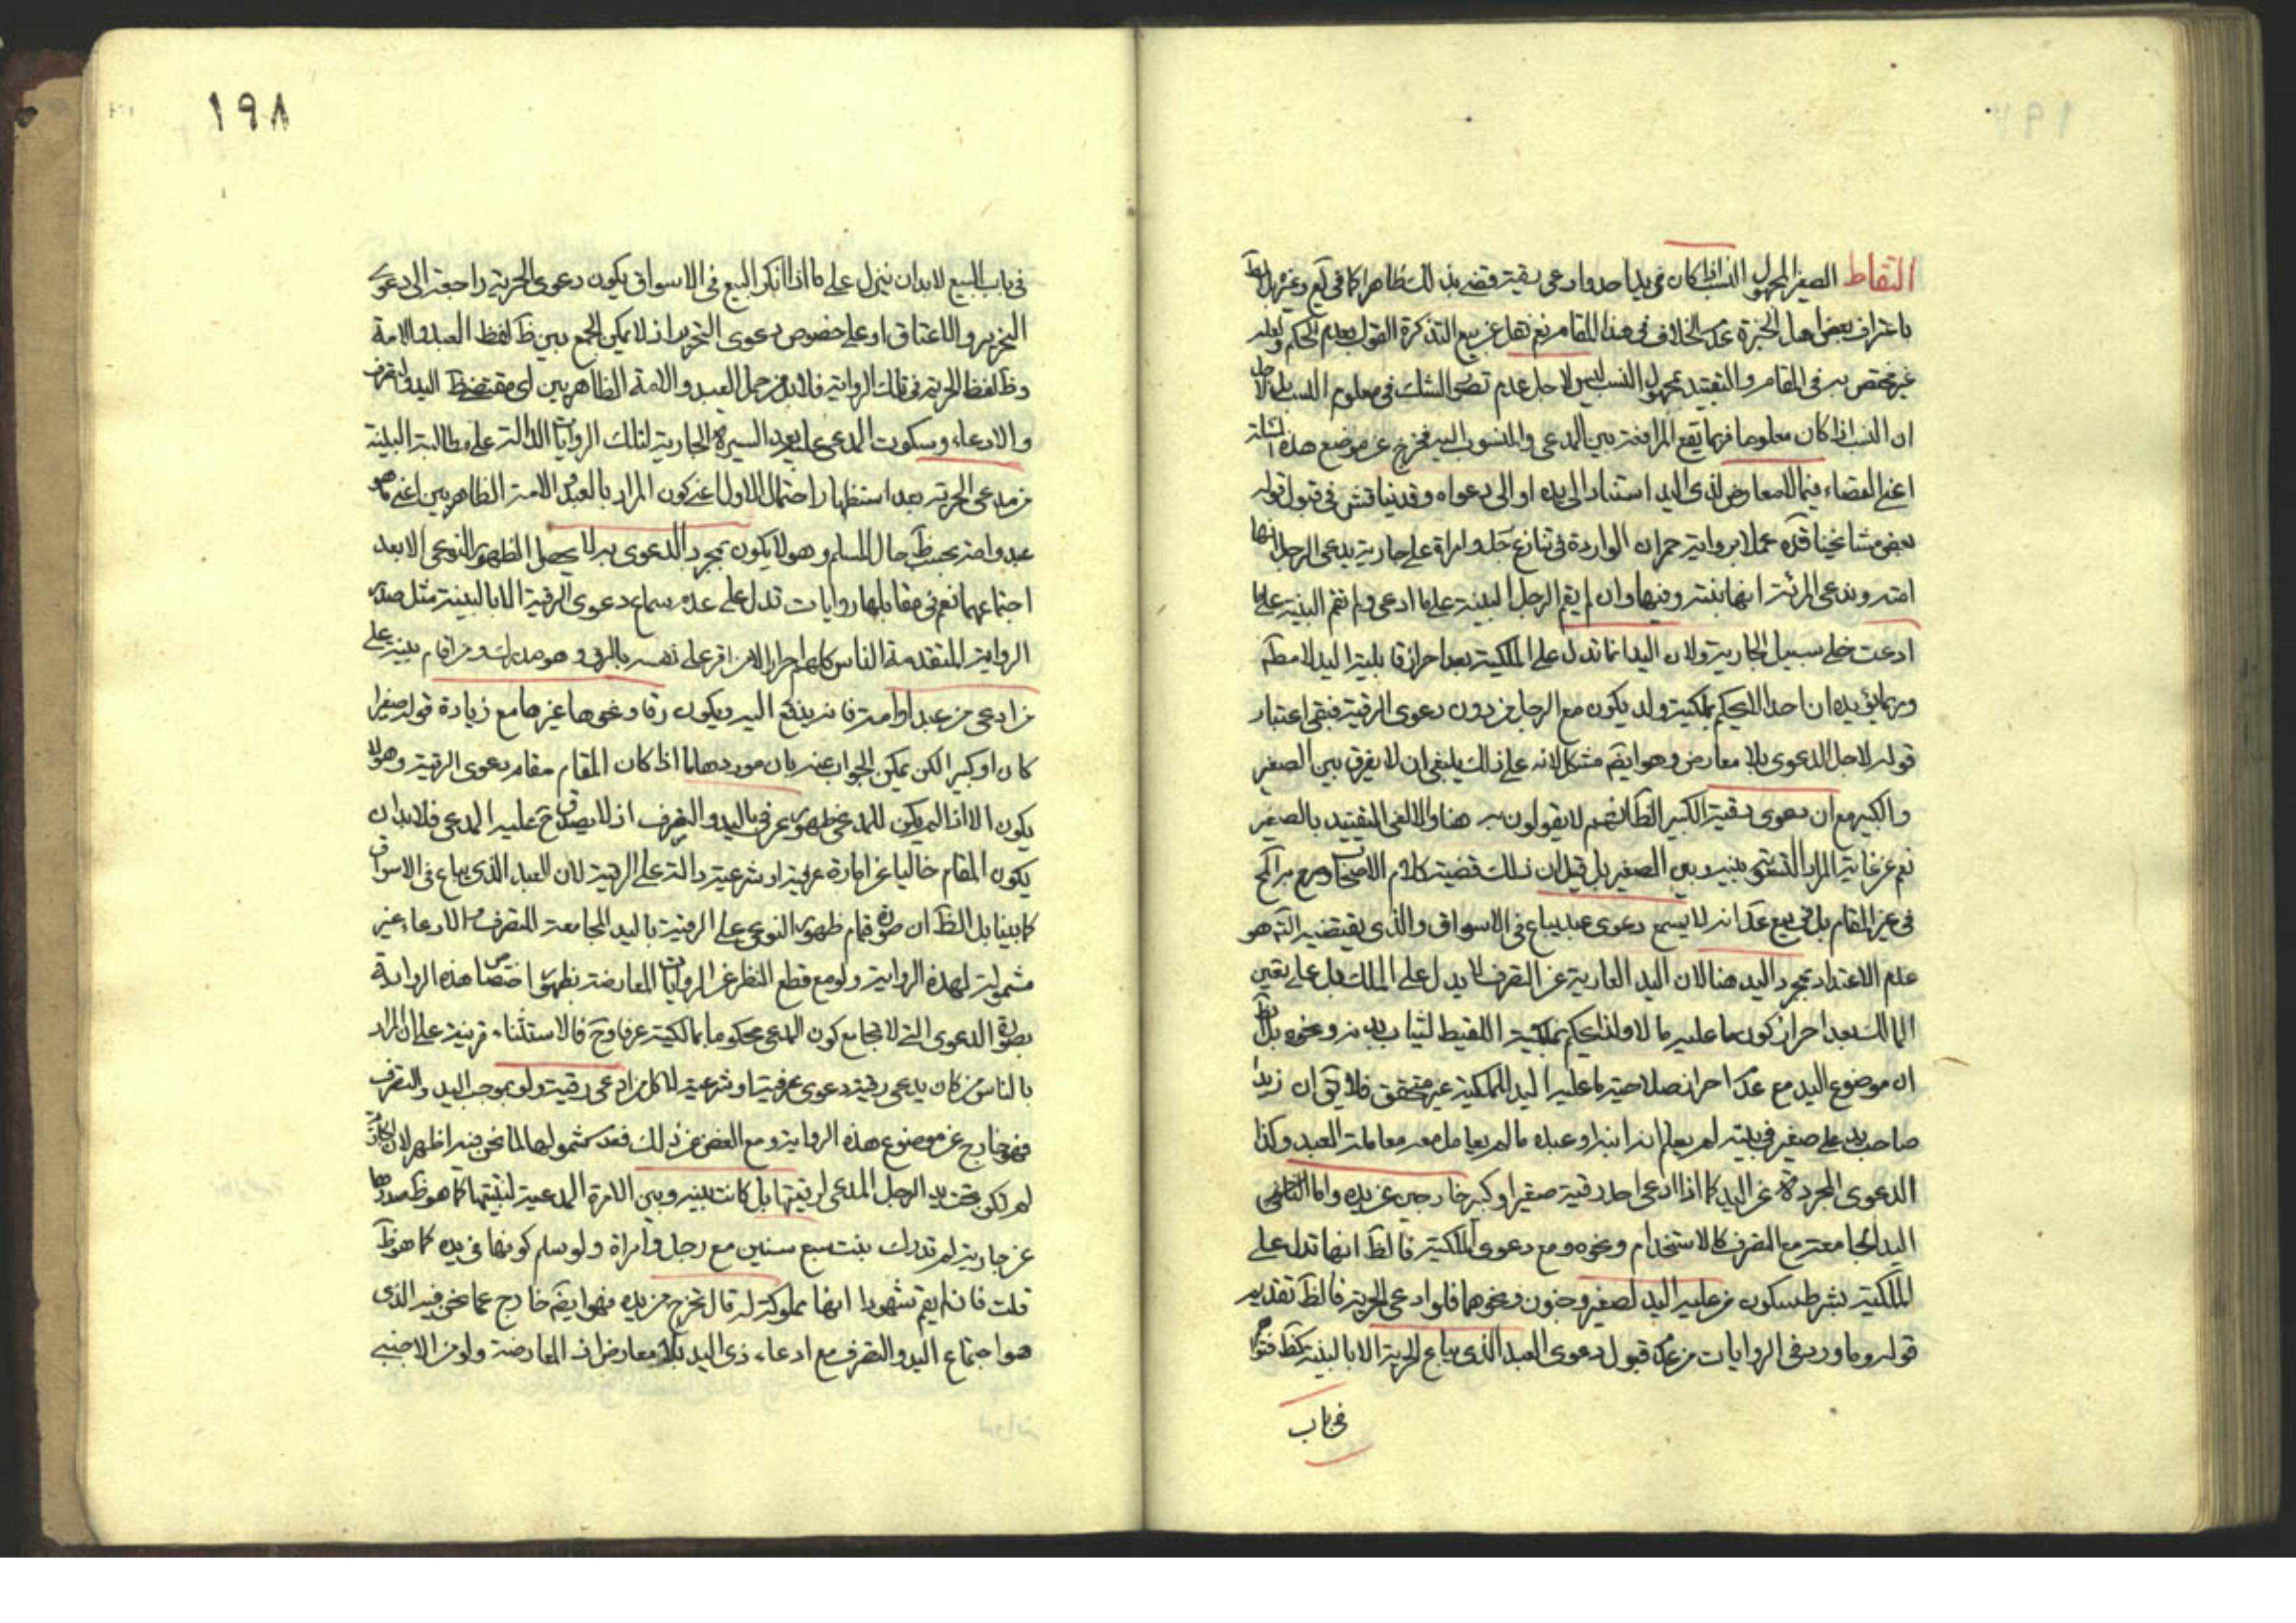 التقاط الصغير المجهول النسب اذا كان فى يد احد وادعى رقيته قضى بذلك ظاهرا كما فى يع وغيره بل الظ
باعتراف بعض اهل الخبرة عدم الخلاف فى هذا المقام نعم نقل عن بيع التذكرة القول بعدم الحكم ولعله
غير مختص به فى المقام والتقييد بمجهول النسب ليس لاجل عدم تصور الشك فى معلوم النسب بل لاجل
ان النسب اذا كان معلوما فربما تقع المرافعة بين المدعى والمنسوب اليه فيخرج عن موضع هذه المسئلة
اعنى القضاء فيما لا معارض لذى اليد استنادا الى يده او الى دعواه وقد يناقش فى قبول قوله
بعض مشايخنا قده عملا برواية حمران الواردة فى تنازع رجل وامراة على جارية يدعى الرجل انها
امته وتدعى المرئة انها بنته وفيها وان لم يقم الرجل البينة على ما ادعى ولم تقم البينة على ما
ادعت خلى سبيل الجارية ولان اليد انما تدل على الملكية بعد احراز قابلية اليد لا مطم
ومما يؤيده ان احدا لا يحكم بملكية ولد يكون مع الرجل من دون دعوى الرقية فبقى اعتبار
قوله لاجل الدعوى بلا معارض وهو ايضم مشكل لانه على ذلك ينبغى ان لا يفرق بين الصغير
والكبير مع ان دعوى رقية الكبير الظ انهم لا يقولون به هنا والا لغى التقييد بالصغير
نعم عن غاية المراد التسوية بينه وبين الصغير بل قيل ان ذلك قضية كلام الاصحاب وصرح به المح
فى غير المقام بل فى بيع عد انه لا يسمع دعوى عبد يباع فى الاسواق والذى يقتضيه النظر هو
عدم الاعتداد بمجرد اليد هنا لان اليد العارية عن التصرف لا يدل على الملك بل على تعيين
المالك بعد احراز كون ما عليه مالا ولذا يحكم بملكية اللقيط لثياب بدنه ونحوه بل الظ
ان موضوع اليد مع عدم احراز صلاحية ما عليه اليد للملكية غير متحقق فلا يق ان زيدا
صاحب يد على صغير فى بيته لم يعلم انه ابنه او عبده ما لم يعامل معه معاملة العبد وكذا
الدعوى المجردة عن اليد كما اذا ادعى احد رقية صغير او كبير خارجين عن يده واما
اليد الجامعة مع التصرف كالاستخدام ونحوه ومع دعوى الملكية فالظ انها تدل على
الملكية بشرط سكون من عليه اليد لصغر وجنون ونحوهما فلو ادعى الحرية فالظ تقديم
قوله وما ورد فى الروايات من عدم قبول دعوى العبد الذى يباع الحرية الا بالبينة كظ فتوا
فى باب
١٩٨
فى باب البيع لابد ان ينزل على ما اذا انكر البيع فى الاسواق يكون دعوى الحرية راجعة الى دعوى
التحرير والاعتاق او على خصوص دعوى التحرير اذ لا يمكن الجمع بين ظ لفظ العبد والامة
وظ لفظ الحرية فى تلك الرواية فلابد من حمل العبد والامة الظاهريين اى مقتضى ظ اليد والتصرف
والادعاء وسكوت المدعى عليه بعد السيرة الجارية لتلك الروايات الدالة على مطالبة البينة
من مدعى الحرية بعد استظهار احتمال الاول اعنى كون المراد بالعبد والامة الظاهريين اعنى ما هو
عبد وامة بحسب ظ حال المسلم وهو لا يكون بمجرد الدعوى بل لا يحصل الظهور النوعى الا بعد
اجتماعهما نعم فى مقابلها روايات تدل على عدم سماع دعوى الرقية الا بالبينة مثل صدر
الرواية المتقدمة الناس كلهم احرار الا من اقر على نفسه بالرق وهو مدرك ومن اقام بينة على
من ادعى من عبد او امة فانه يدفع اليه ويكون رقا ونحوها غيرها مع زيادة قوله صغيرا
كان او كبيرا لكن يمكن الجواب عنه بان موردها ما اذا كان المقام مقام دعوى الرقية وهو لا
يكون الا اذا لم يكن للمدعى ظهور عرفى باليد والتصرف اذ لا يصدق ح عليه المدعى فلابد ان
يكون المقام خاليا عن امارة عرفية او شرعية دالة على الرقية لان العبد الذى يباع فى الاسواق
كما بينا بل الظ ان صورة قيام ظهور النوعى على الرقية باليد المجامعة للتصرف والادعاء غير
مشمولة لهذه الرواية ولو مع قطع النظر عن الروايات المعارضة بظهور اختصاص هذه الرواية
بصورة الدعوى التى لا تجامع كون المدعى محكوما بمالكيته عرفا وح فالاستثناء قرينة على ان المراد
بالناس من كان يدعى رقيته دعوى عرفية او شرعية لا كل من ادعى رقيته ولو بموجب اليد والتصرف
فهو خارج عن موضوع هذه الرواية ومع الغض عن ذلك فعدم شمولها لما نحن فيه اظهر لان الجارية
لم تكن تحت يد الرجل المدعى لرقيتها بل كانت بينه وبين الامرئة المدعية لبنتيتها كما هو ظ صدرها
عن جارية لم تدرك بنت سبع سنين مع رجل وامراة ولو سلم كونها فى يده كما هو ظ
قلت فان لم يقم شهودا انها مملوكته له قال تخرج من يده فهو ايضم خارج عما نحن فيه الذى
هو اجتماع اليد والتصرف مع ادعاء ذى اليد بلا معارض اذ المعارضة ولو من الاجنبى